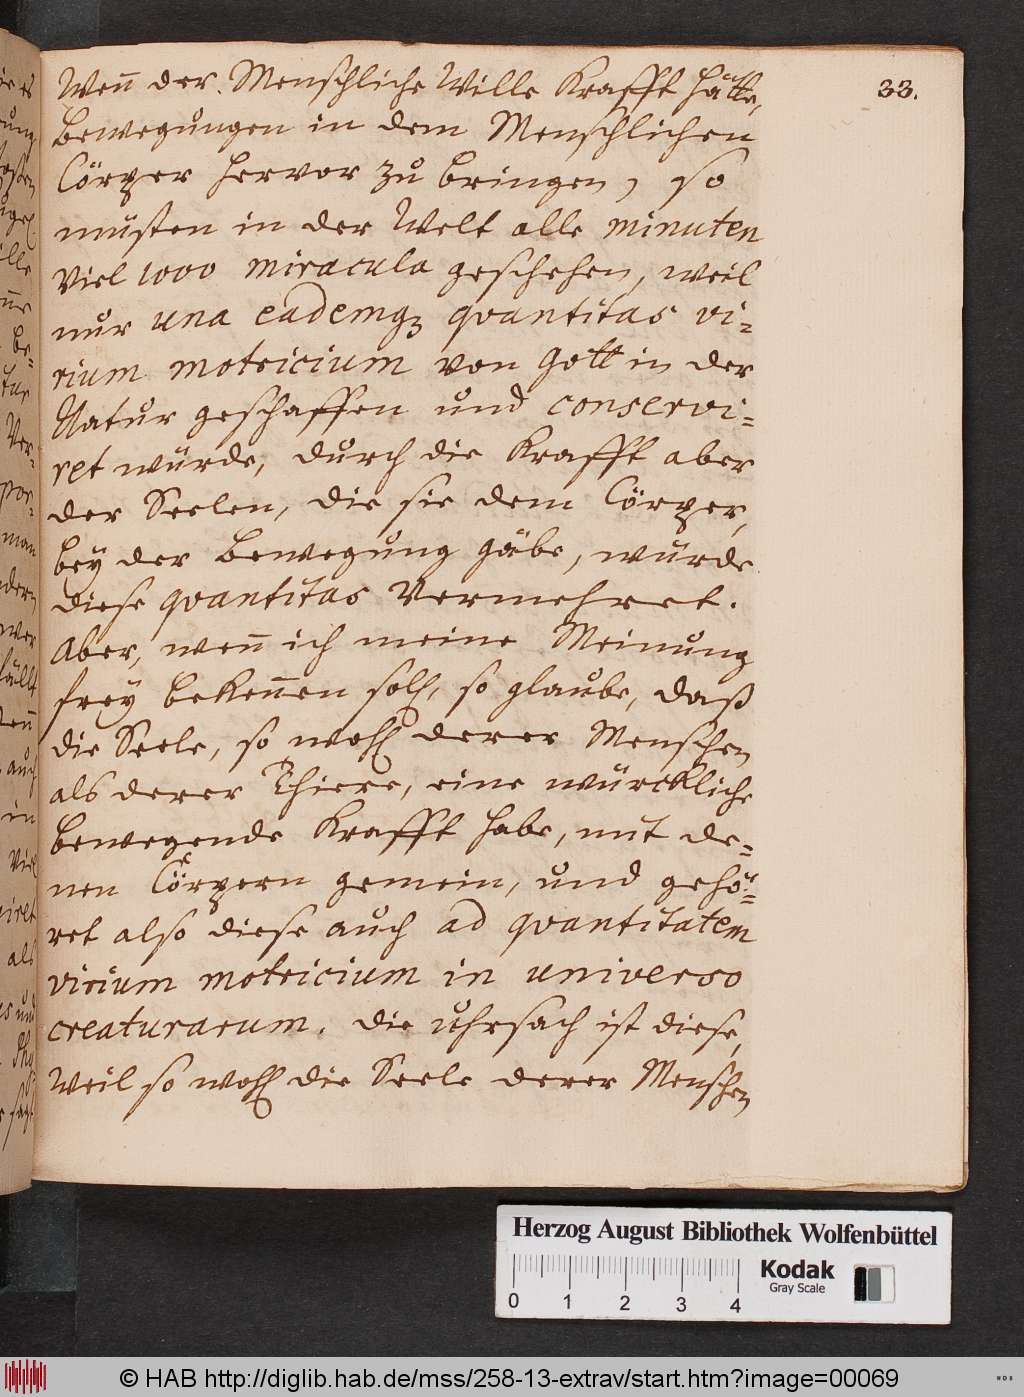 33.
Wen̄ der Menschliche Wille Krafft hätte,
Bewegungen in dem Menschlichen
Cörper hervor zu bringen, so
müsten in der Welt alle minuten
Viel 1000 miracula geschehen, weil
nur una eademqꝫ qvantitas vi-
rium motricium von Gott in der
Natur geschaffen und conservi-
ret würde, durch die Krafft aber
der Seelen, die sie dem Cörper,
bey der Bewegung gäbe, würde
diese qvantitas Vermehret.
Aber, wen̄ ich meine Meinung
frey beken̄en soll, so glaube, daß
die Seele, so wohl derer Menschen
als derer Thiere, eine würckliche
bewegende Krafft habe, mit de-
nen Cörpern gemein, und gehö-
ret also diese auch ad qvantitatem
virium motricium in universo
creaturarum. Die Uhrsach ist diese,
Weil so wohl die Seele derer Menschen
Herzog August Bibliothek Wolfenbüttel
Kodak
Gray Scale
0 1 2 3 4
© HAB http://diglib.hab.de/mss/258-13-extrav/start.htm?image=00069